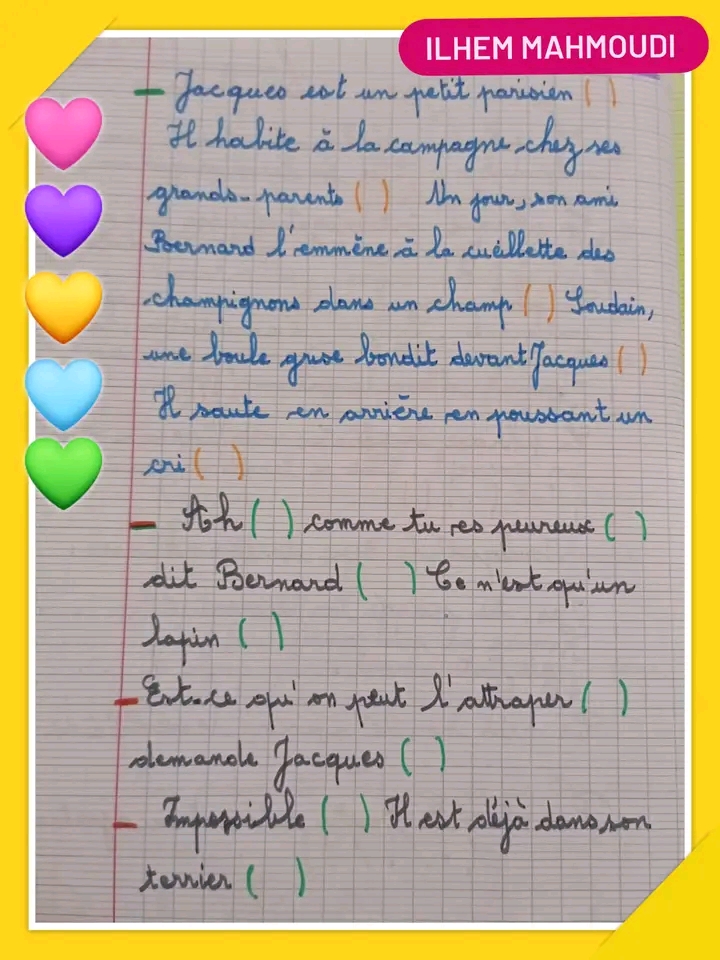 ILHEM MAHMOUDI
- Jacques est un petit parisien ( )
Il habite à la campagne chez ses
grands-parents ( ) Un jour, son ami
Bernard l'emmène à la cuéillette des
champignons dans un champ ( ) Soudain,
une boule grise bondit devant Jacques ( )
Il saute en arrière en poussant un
cri ( )
- Ah ( ) comme tu es peureux ( )
dit Bernard ( ) Ce n'est qu'un
lapin ( )
- Est-ce qu'on peut l'attraper ( )
demande Jacques ( )
- Impossible ( ) Il est déjà dans son
terrier ( )